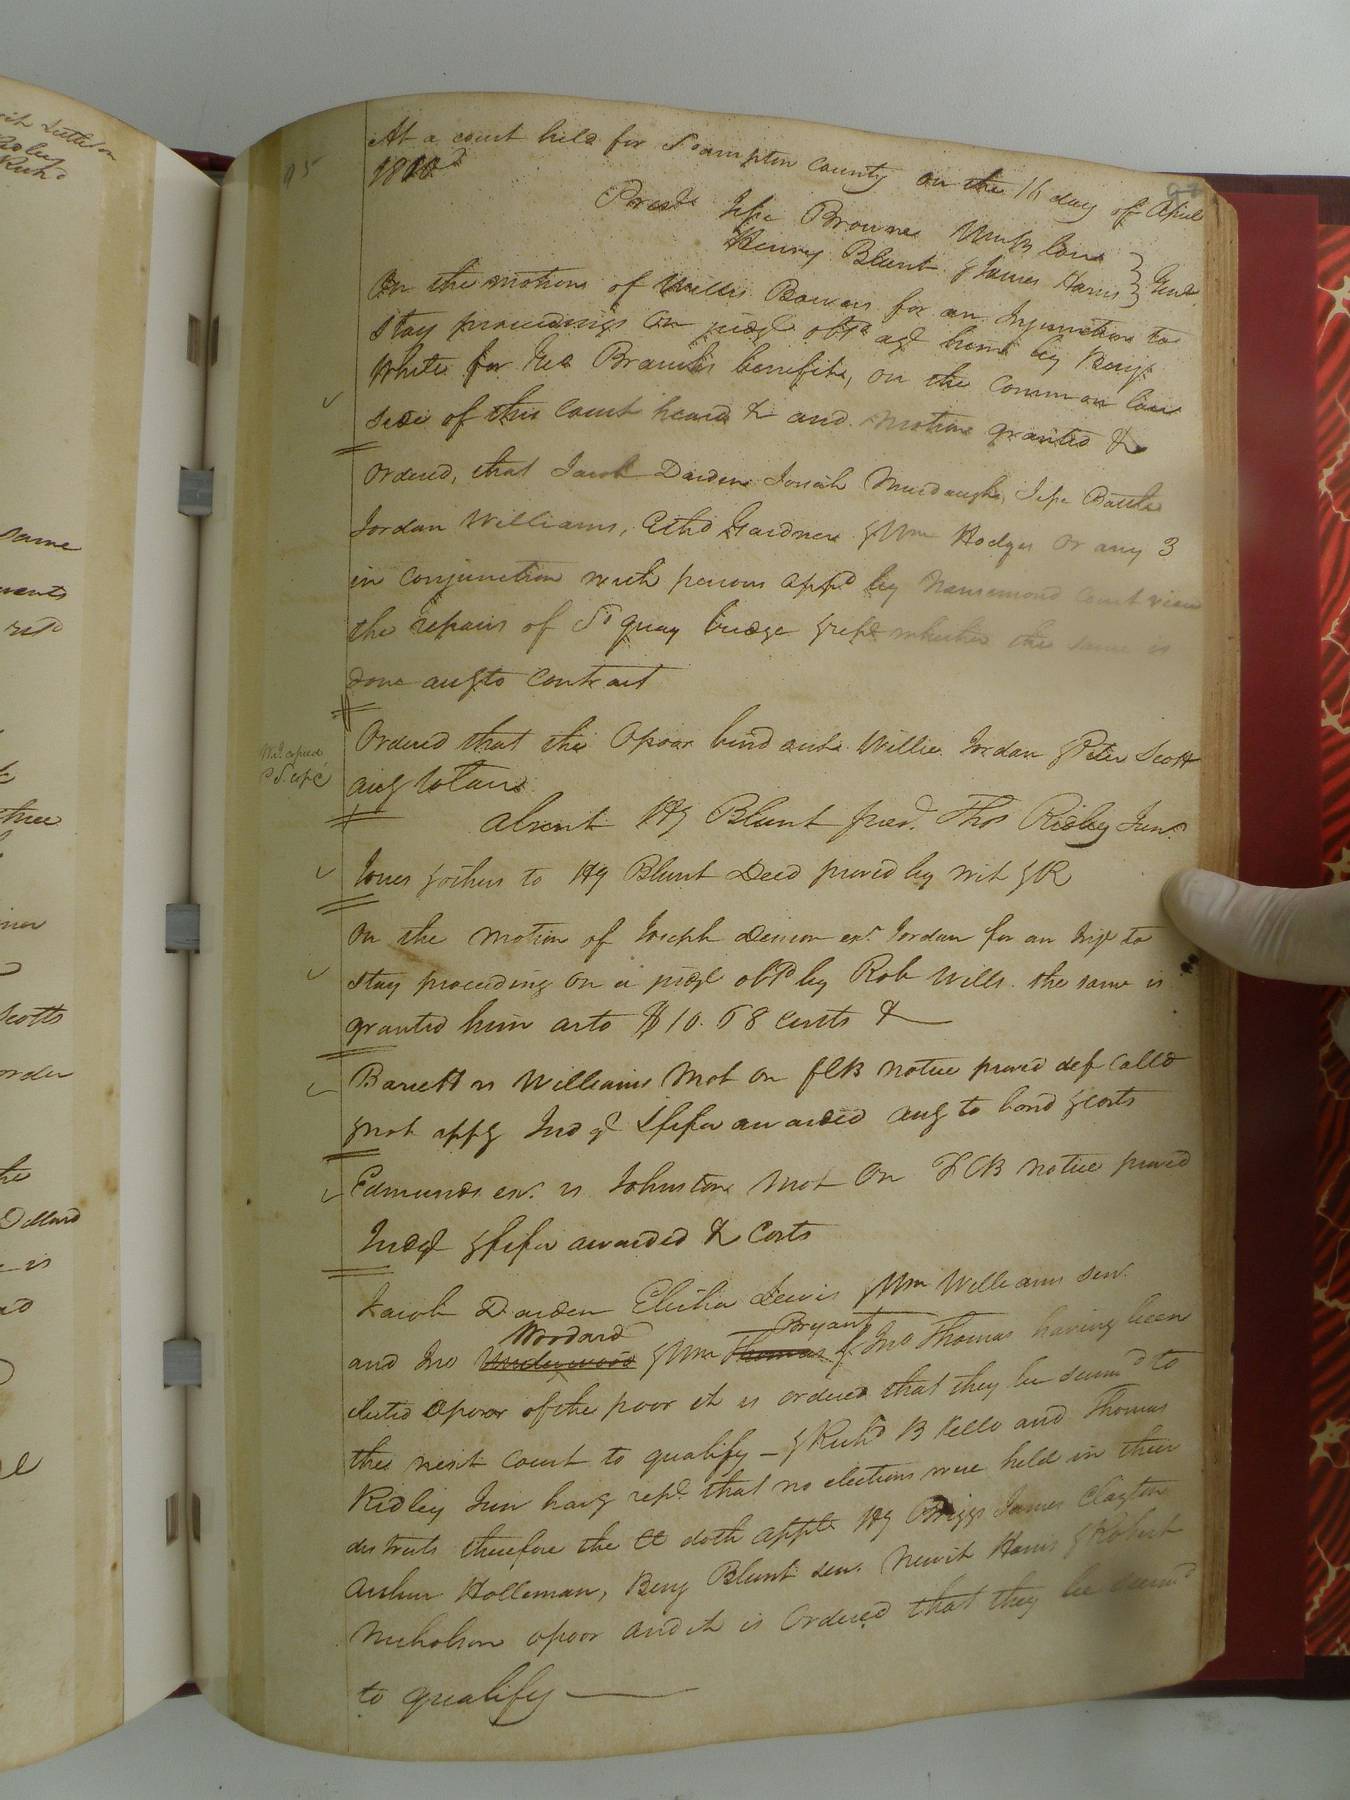 95
At a court held for S'ampton County on the 16 day of April
1810
Prest Jesse Browne
Henry Blunt & James Harris } Gent
On the motion of Willis Bowers for an Injunction to
stay proceedings on judgt obtd agt him by Benj
White for Geo Branch's benefit, on the common law
side of this Court heard & and motion granted &
Ordered, that Jacob Darden Josiah Murdaugh, Jesse Battle
Jordan Williams, Gardner & Wm Hodges or any 3
in conjunction with persons appd by Nansemond Court view
the repairs of So quay bridge & rept whether the same is
done acg to contract
Ordered that the Opoor bind out Willie Jordan & Peter Scott
acg to law
absent Hy Blunt prest Thos Ridley Junr
Jones & others to Hy Blunt Deed proved by wit & R
On the motion of Joseph Denson exr Jordan for an Inj to
stay proceeding on a judgt obtd by Rob Wills the same is
granted him as to $10.68 cents &
Barrett vs Williams Mot on FCB notice proved def calld
& not appg Judgt & fifa awarded acg to bond & costs
Edmunds exr vs Johnston Mot On FCB notice proved
Judgt & fifa awarded & Costs
Jacob Darden Elisha Lewis & Wm Williams senr
Woodard Bryant
and Jno Underwood & Wm Thomas & Jno Thomas having been
elected Opoor of the poor it is ordered that they be summd to
the next Court to qualify — & Richd B Kello and Thomas
Ridley Jun havg rept that no elections were held in their
districts therefore the Ct doth appt Hy Briggs James Clayton
Arthur Holleman, Benj Blunt senr Newit Harris & Robert
Nicholson opoor and it is Ordered that they be summd
to qualify —